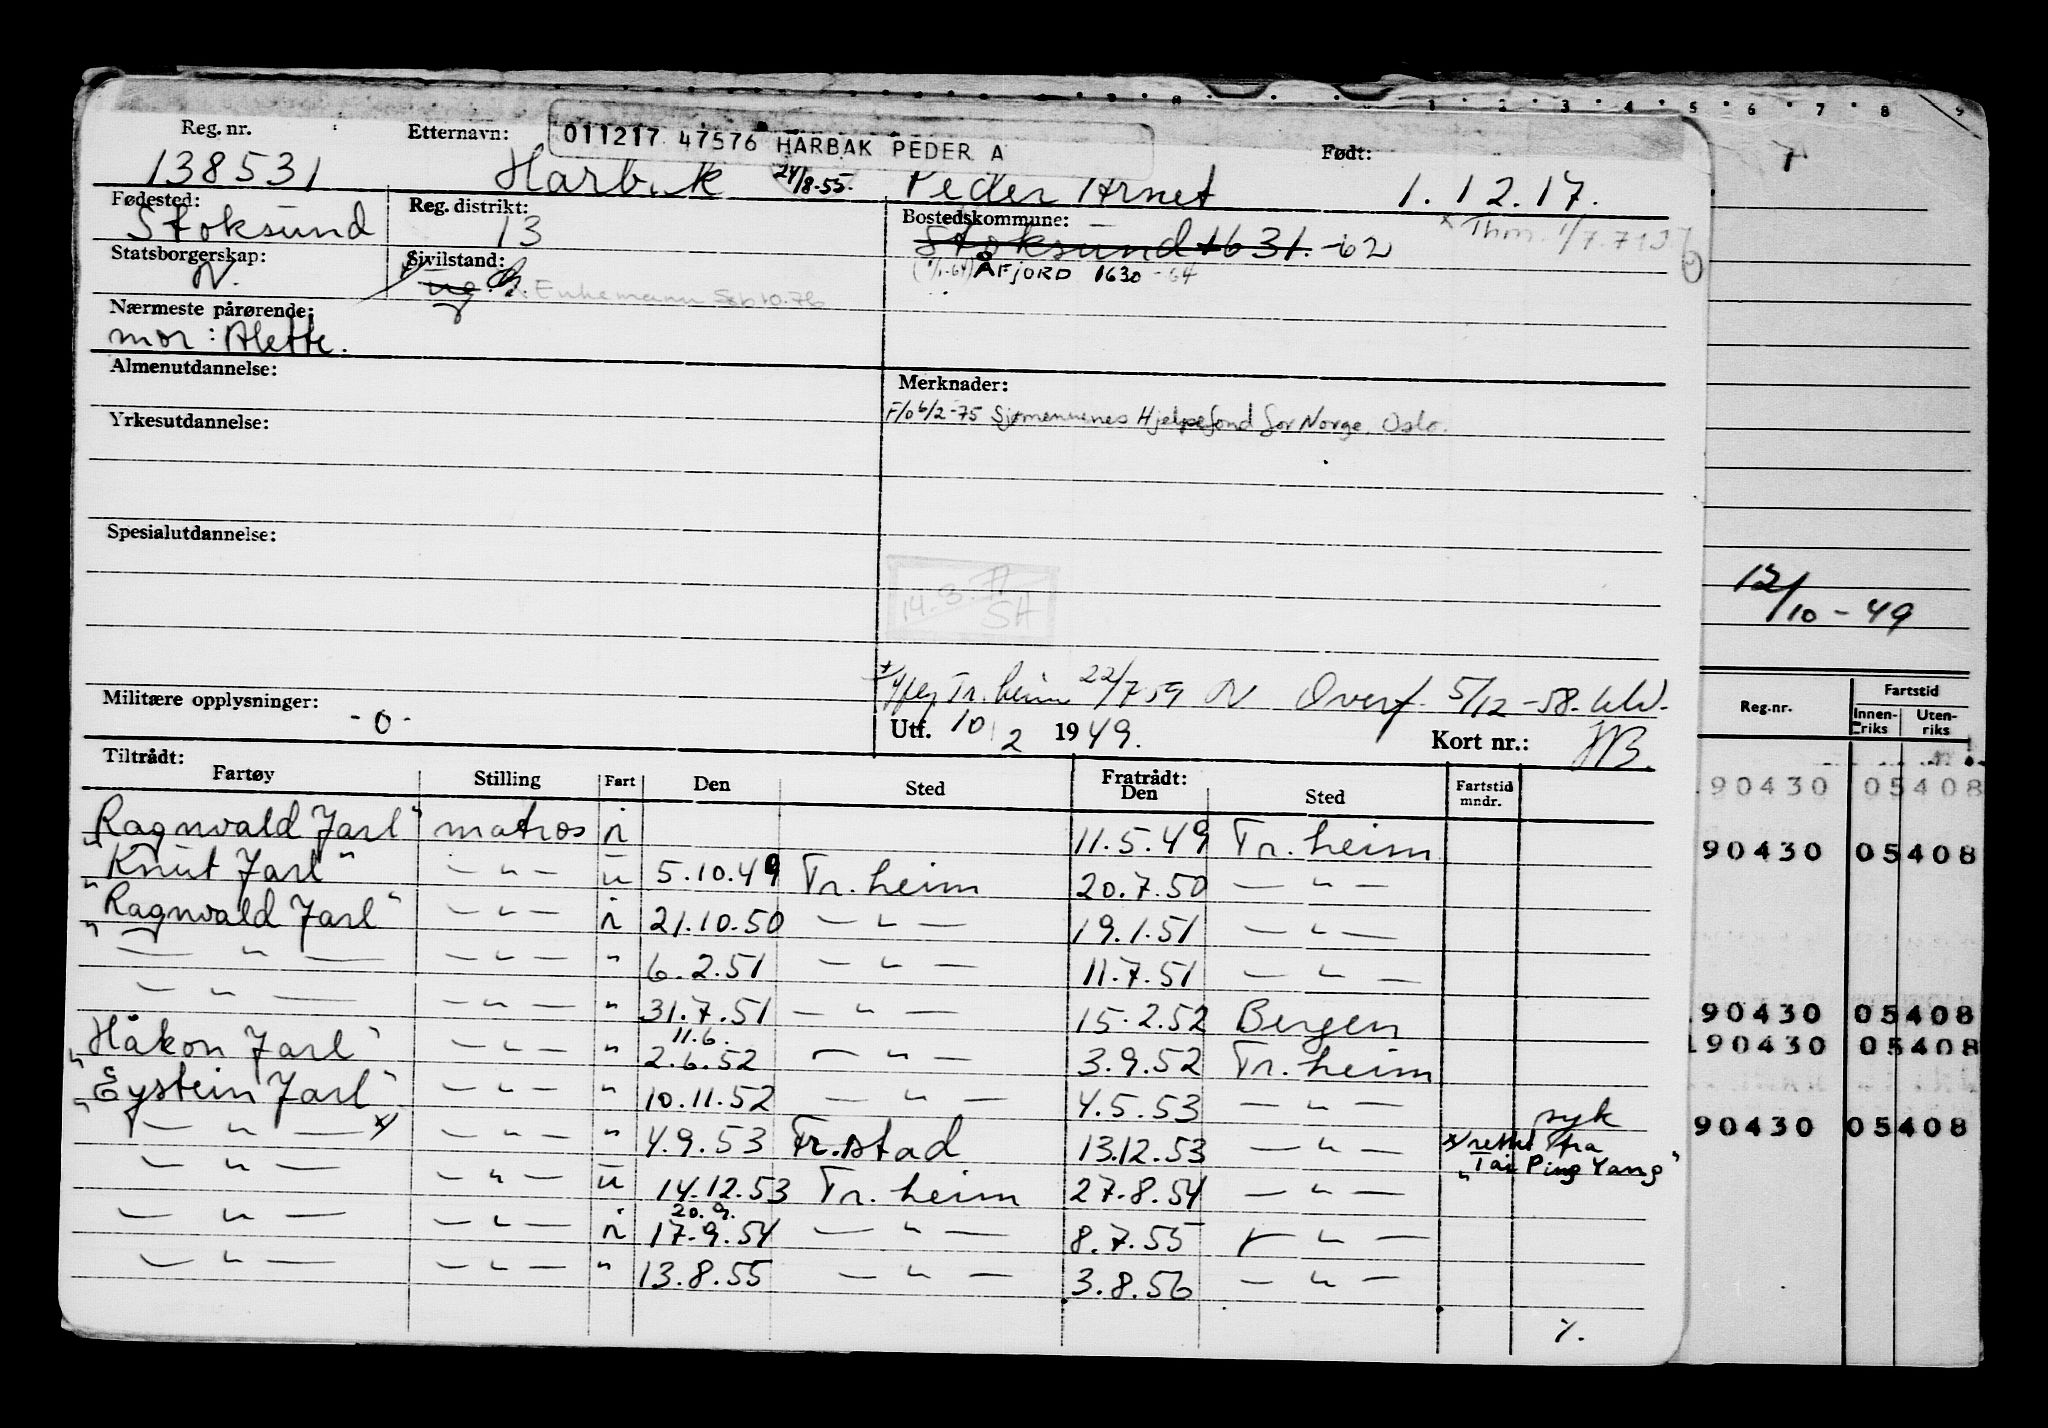 Reg. nr. Etternavn: 011217 47576 HARBAK PEDER A Født:
138531 Harbak 24/8-55. Peder Arnet 1.12.17.
Fødested: Reg. distrikt: Bostedskommune:
Stoksund 13 Stoksund 1631. -62
Statsborgerskap: Sivilstand:
N. ug. Enkemann
ÅFJORD 1630 -64
Nærmeste pårørende:
mor: Alette.
Almenutdannelse: Merknader:
F/o 6/2-75 Sjømennenes Hjelpefond for Norge, Oslo.
Yrkesutdannelse:
Spesialutdannelse:
14.3.77
SH
12/10-49
Tr. heim 22/7 59 Overf. 5/12-58.
Militære opplysninger: -0- Utf. 10/2 1949. Kort nr.:
Tiltrådt: Fratrådt:
Fartøy Stilling Fart Den Sted Den Sted Fartstid mndr.
"Ragnvald Jarl" matros i 11.5.49 Tr. heim
"Knut Jarl" — " — u 5.10.49 Tr. heim 20.7.50 — " —
"Ragnvald Jarl" — " — i 21.10.50 — " — 19.1.51 — " —
— " — — " — " 6.2.51 — " — 11.7.51 — " —
— " — — " — " 31.7.51 — " — 15.2.52 Bergen
11.6.
"Håkon Jarl" — " — " 2.6.52 — " — 3.9.52 Tr. heim
"Eystein Jarl" — " — " 10.11.52 — " — 4.5.53 — " — syk
— " — x/ — " — " 4.9.53 Fr.stad 13.12.53 — " — x/ rettet fra
"Tai Ping Yang"
— " — — " — u 14.12.53 Tr. heim 27.8.54 — " —
20.9.
— " — — " — i 17.9.54 — " — 8.7.55 — " —
— " — — " — " 13.8.55 — " — 3.8.56 — " —
Reg.nr. Fartstid
Innenriks Utenriks
90430 05408
90430 05408
90430 05408
190430 05408
90430 05408
1 2 3 4 5 6 7 8 9